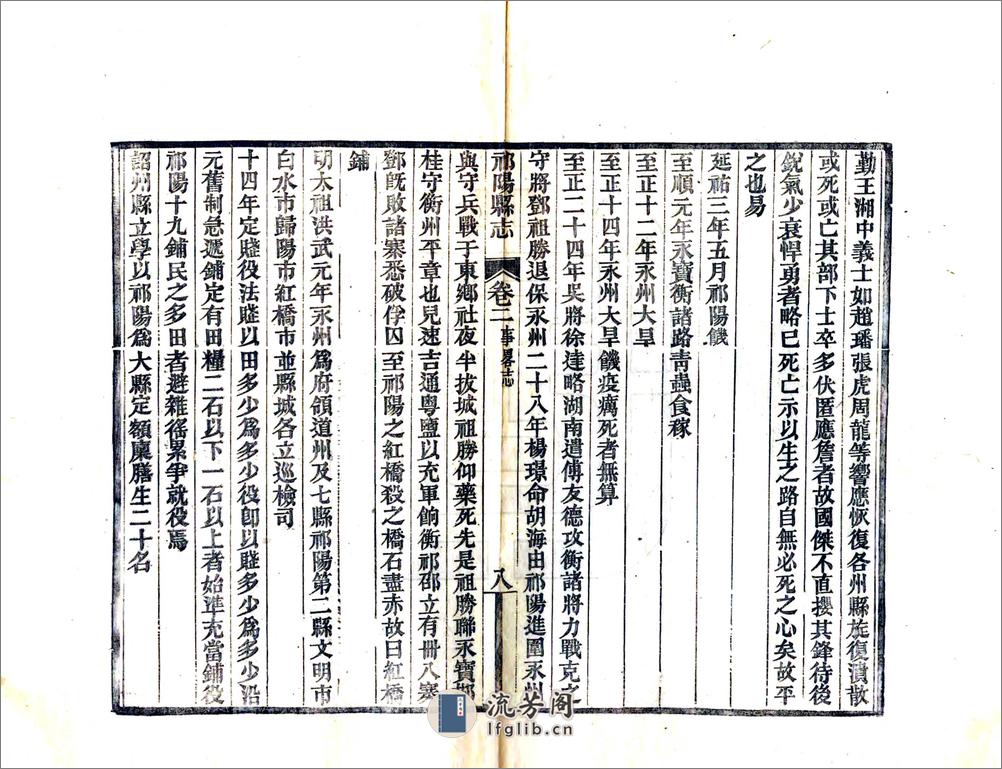 勤王湘中義士如趙璠張虎周龍等響應恢復各州縣旋復潰散
或死或亡其部下士卒多伏匿應詹者故國傑不直攖其鋒待後
銳氣少衰悍勇者略已死亡示以生之路自無必死之心矣故平
之也易
延祐三年五月祁陽饑
至順元年永寶衡諸路青蟲食稼
至正十二年永州大旱
至正十四年永州大旱饑疫癘死者無算
至正二十四年吳將徐達略湖南遣傅友德攻衡諸將力戰克之
守將鄧祖勝退保永州二十八年楊璟命胡海由祁陽進圍永州
祁陽縣志 卷二 事畧志 八
與守兵戰于東鄉社夜半拔城祖勝仰藥死先是祖勝聯永寶郴
桂守衡州平章也兒速吉通粵鹽以充軍餉衡祁邵立有卌八寨
鄧既敗諸寨悉破俘囚至祁陽之紅橋殺之橋石盡赤故曰紅橋
鋪
明太祖洪武元年永州為府領道州及七縣祁陽第二縣文明市
白水市歸陽市紅橋市並縣城各立巡檢司
十四年定賤役法賤以田多少為多少役卽以賤多少為多少沿
元舊制急遞鋪定有田糧二石以下一石以上者始準充當鋪役
祁陽十九鋪民之多田者避雜徭累爭就役焉
詔州縣立學以祁陽為大縣定額廩膳生二十名
流芳阁
lfglib.cn